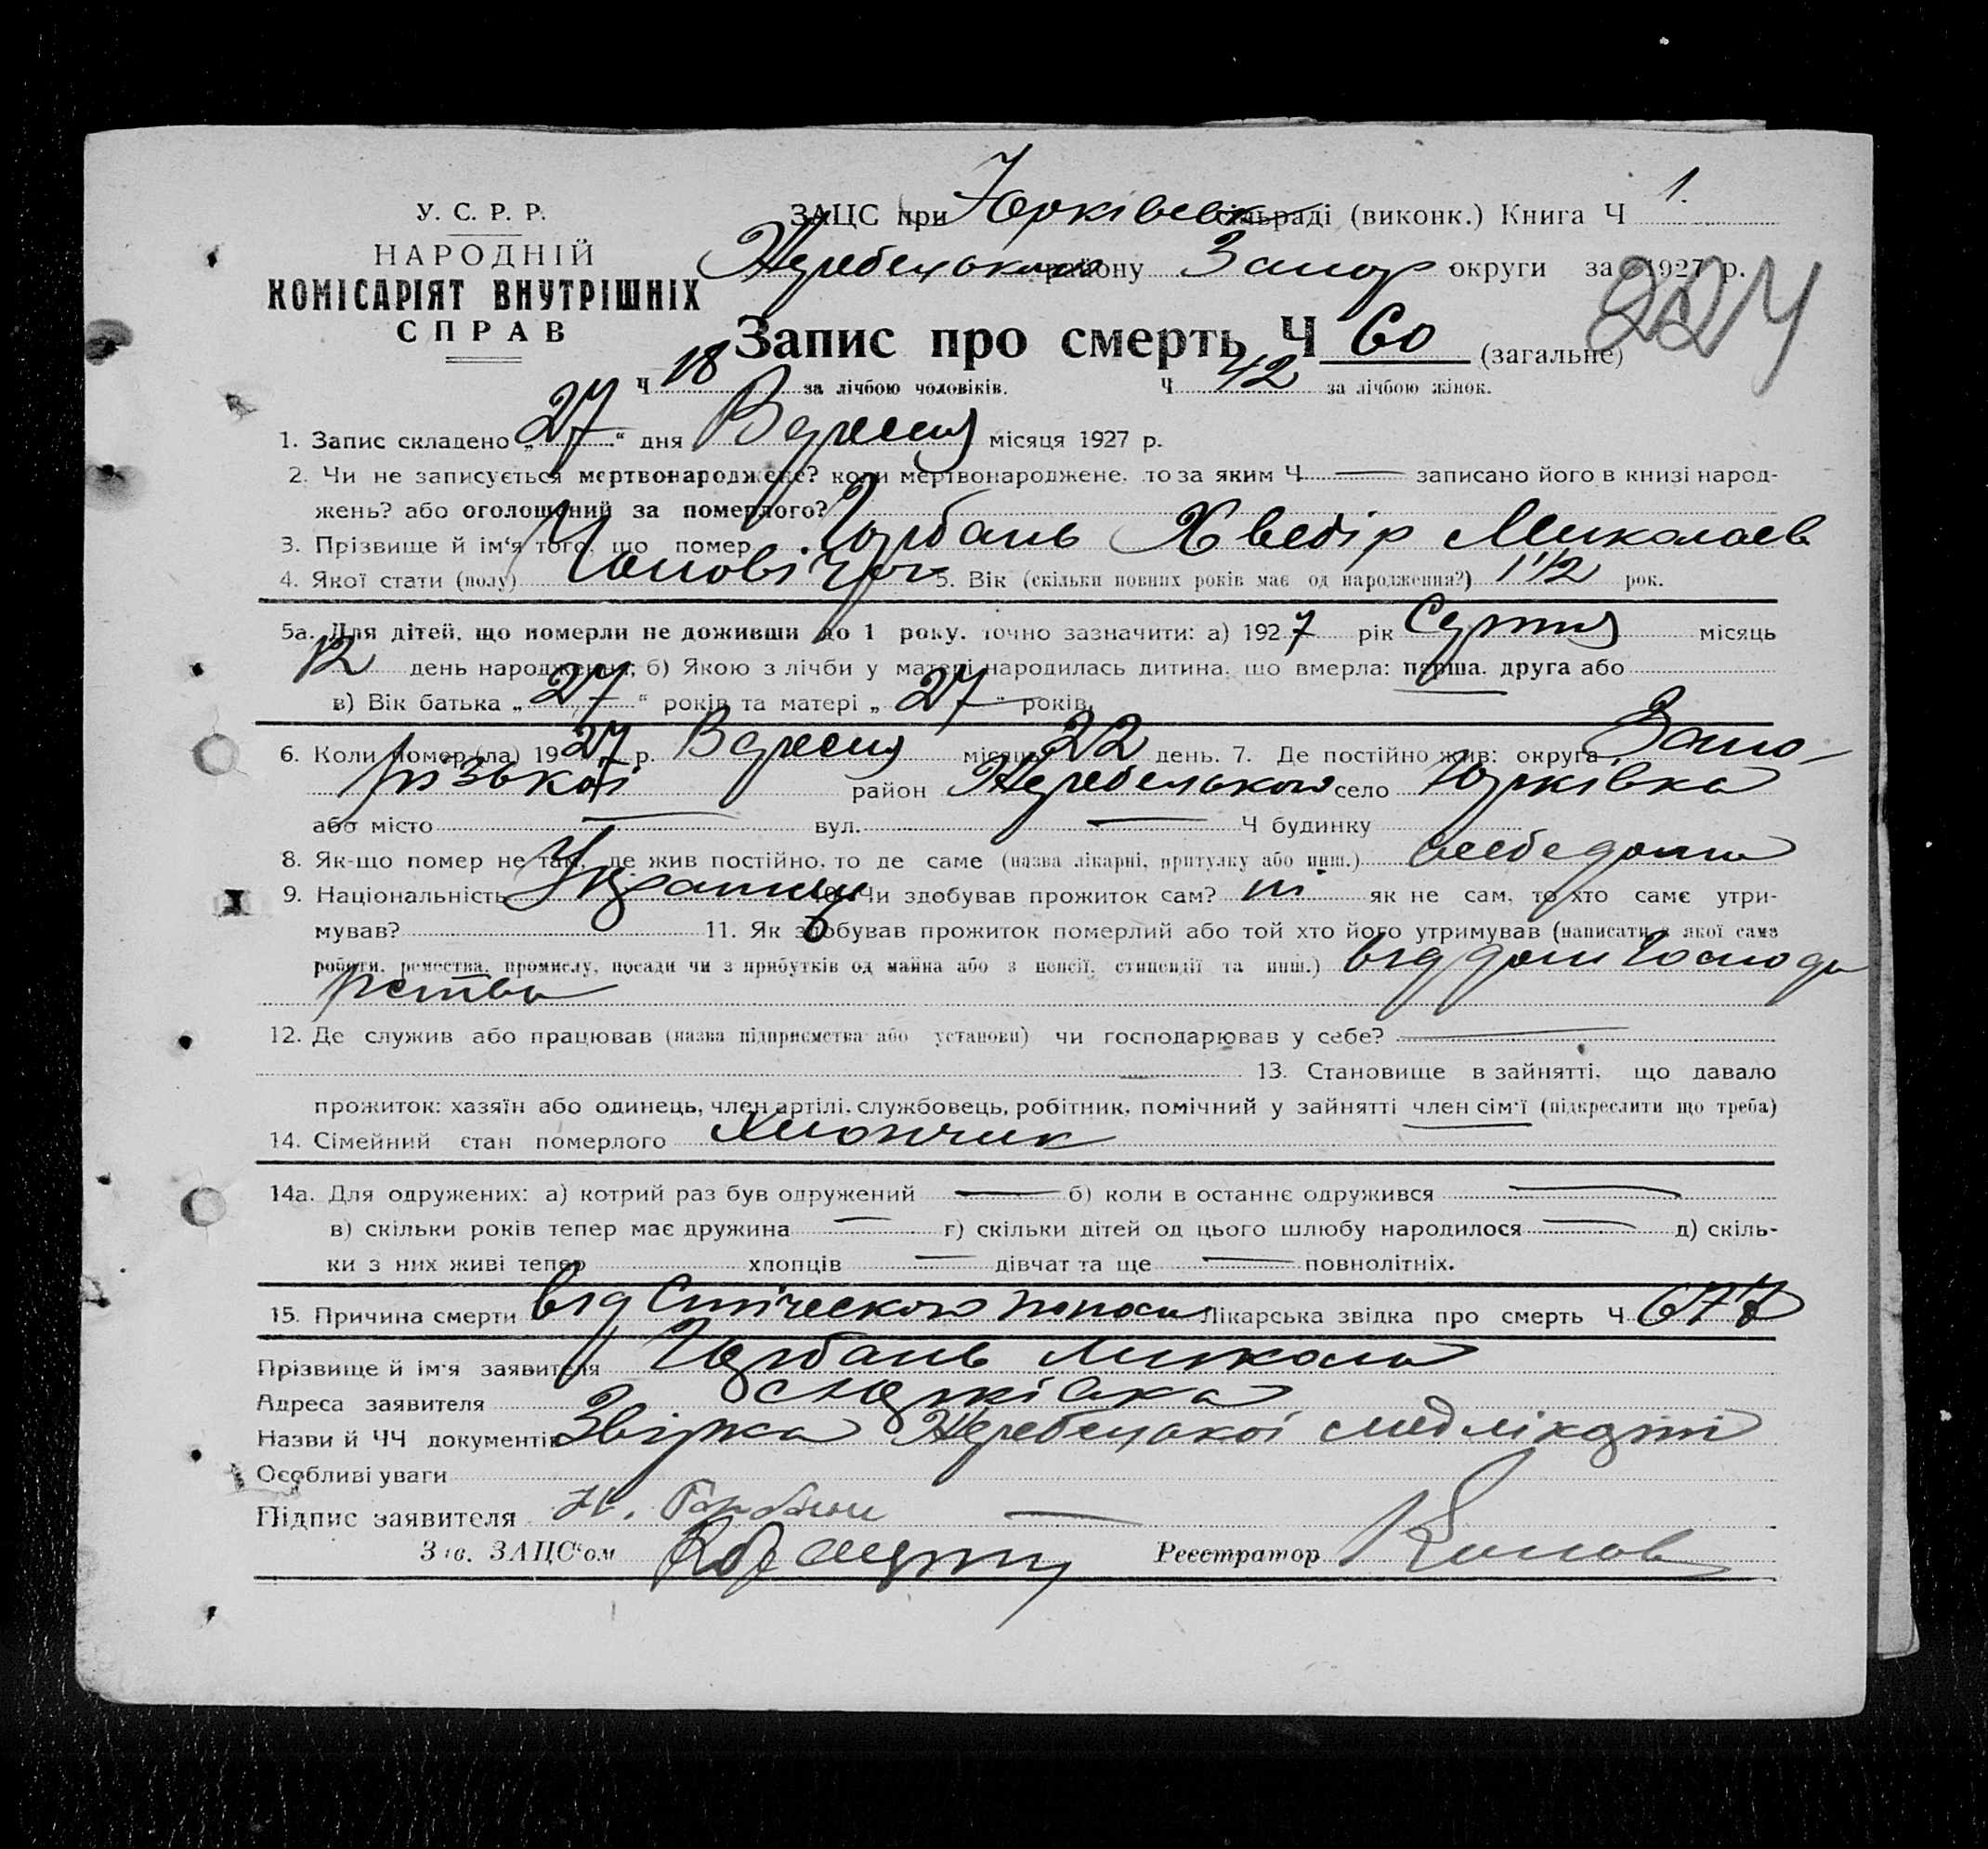 У. С. Р. Р.
НАРОДНІЙ
КОМІСАРІЯТ ВНУТРІШНІХ
СПРАВ
ЗАЦС при Юрківськ сільраді (виконк.) Книга Ч 1.
Жеребецького району Запор округи за 1927 р.
224
Запис про смерть Ч 60 (загальне)
Ч 18 за лічбою чоловіків. Ч 42 за лічбою жінок.
1. Запис складено „27“ дня Вересня місяця 1927 р.
2. Чи не записується мертвонароджене? коли мертвонароджене, то за яким Ч — записано його в книзі народ-
жень? або оголошений за померлого?
3. Прізвище й ім‘я того, що помер Хведір Миколаев
4. Якої стати (полу) Чоловічої 5. Вік (скільки повних років має од народження?) 1 1/2 рок.
5а. Для дітей, що померли не доживши до 1 року, точно зазначити: а) 1927 рік Серпня місяць
12 день народження; б) Якою з лічби у матері народилась дитина, що вмерла: перша, друга або
в) Вік батька „27“ років та матері „27“ років.
6. Коли помер (ла) 1927 р. Вересня місяць 22 день. 7. Де постійно жив: округа Запо-
різької район Жеребецького село Юрківка
або місто — вул. — Ч будинку
8. Як-що помер не там, де жив постійно, то де саме (назва лікарні, притулку або инш.)
9. Національність 10. Чи здобував прожиток сам? ні як не сам, то хто саме утри-
мував? 11. Як здобував прожиток померлий або той хто його утримував (написати з якої сама
роботи, ремества, промислу, посади чи з прибутків од майна або з пенсії, стипендії та инш.) від дом господа
рства
12. Де служив або працював (назва підприємства або установи) чи господарював у себе? —
— 13. Становище в зайнятті, що давало
прожиток: хазяїн або одинець, член артілі, службовець, робітник, помічний у зайнятті член сім‘ї (підкреслити що треба)
14. Сімейний стан померлого Хлопчик
14а. Для одружених: а) котрий раз був одружений — б) коли в останнє одружився —
в) скільки років тепер має дружина — г) скільки дітей од цього шлюбу народилося — д) скіль-
ки з них живі тепер хлопців — дівчат та ще — повнолітніх.
15. Причина смерти від поноса Лікарська звідка про смерть Ч 677
Прізвище й ім‘я заявителя Микола
Адреса заявителя с Юрківка
Назви й ЧЧ документів Жеребецької
Особливі уваги
Підпис заявителя
Зав. ЗАЦС‘ом Реєстратор